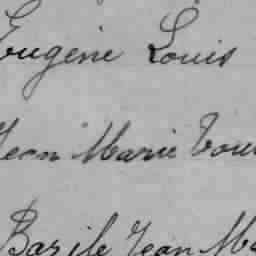 Eugène Louis
Jean Marie Lou
Basile Jean Ma